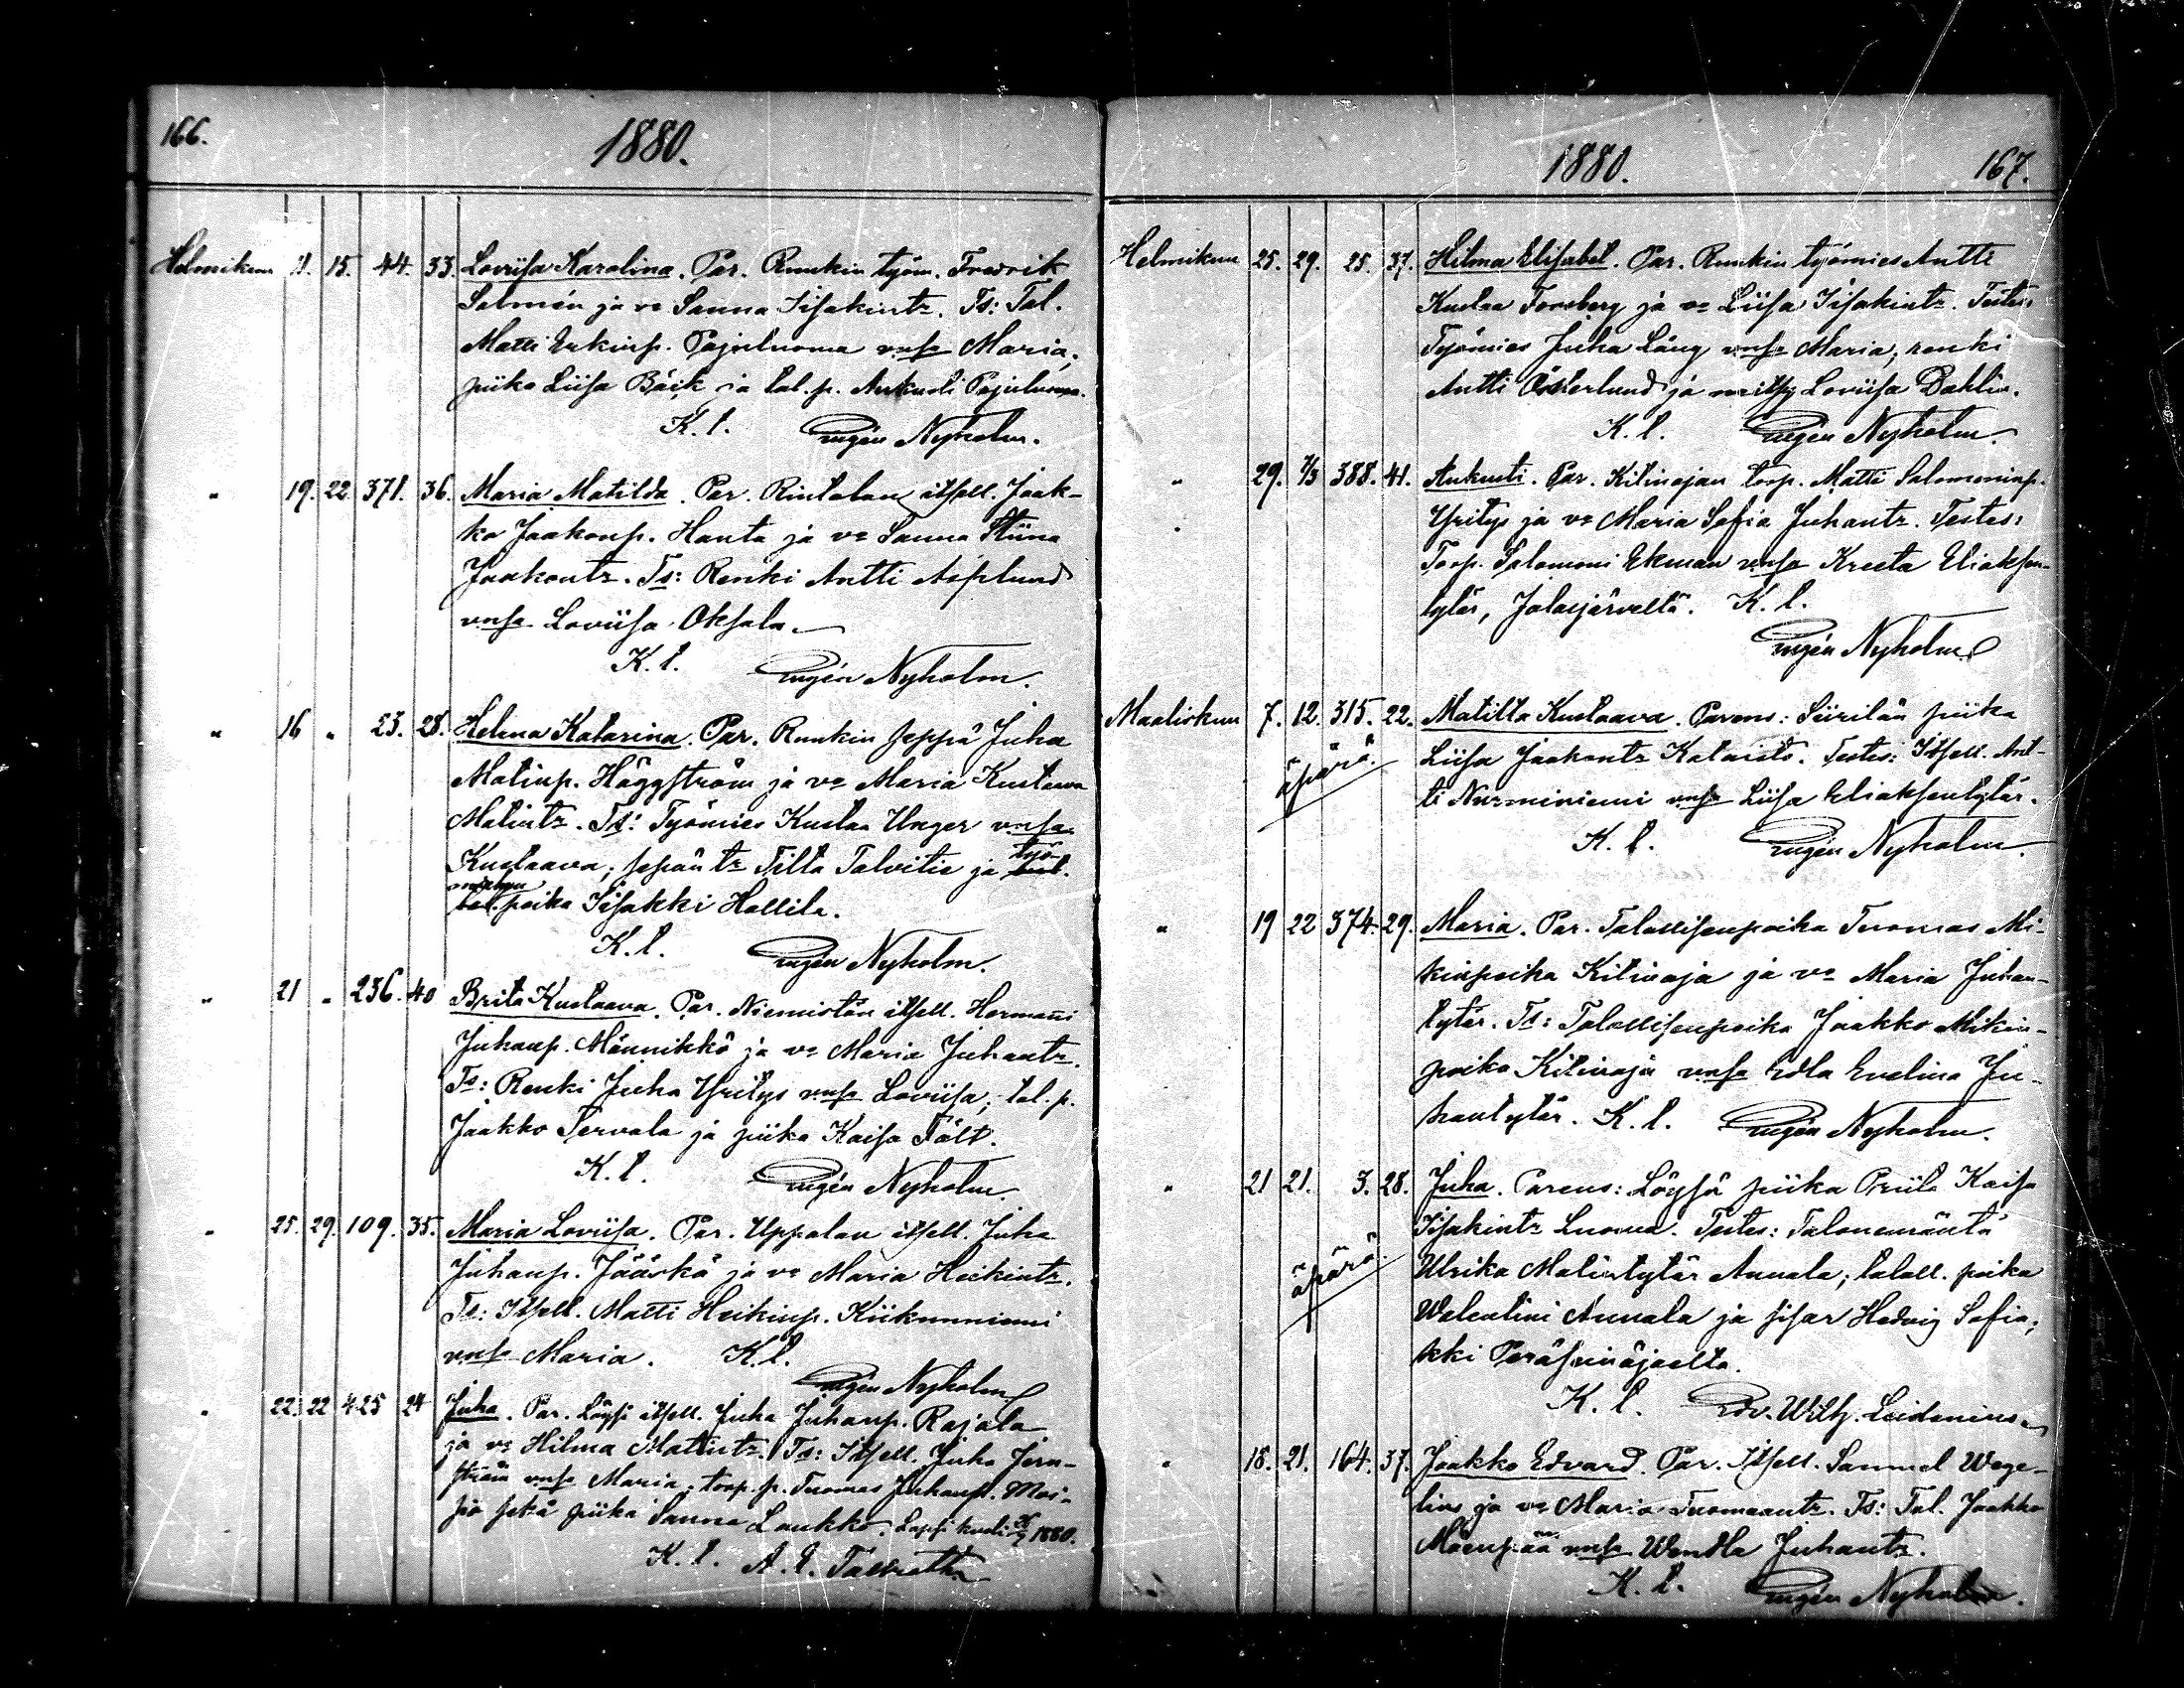 166.
1880.
Helmikuu 11. 15. 44. 33. Loviisa Karolina. Par. Runkin työm. Fredrik
Salmén ja vo Sanna Iisakintr. Ts: Tal.
Matti Erkinp. Pajuluoma vnsa Maria;
piika Liisa Bäck ja tal. p. Aukusti Pajuluoma.
K. l. Eugén Nyholm.
" 19. 22. 371. 36. Maria Matilda. Par. Rintalan itsell. Jaak-
ko Jaakonp. Hauta ja vo Sanna Stiina
Jaakontr. Ts: Renki Antti Asplund
vnsa Loviisa Oksala.
K. l. Eugén Nyholm.
" 16 " 23. 28. Helena Katarina. Par. Runkin seppä Juha
Matinp. Häggström ja vo Maria Kustaava
Matintr. Ts: Työmies Kustaa Unger vnsa
Kustaava; sepän tr Tilta Talvitie ja työ-
miehen poika Iisakki Hallila.
K. l. Eugén Nyholm.
" 21 " 236. 40 Brita Kustaava. Par. Niemistön itsell. Hermanni
Juhanp. Männikkö ja vo Maria Juhantr.
Ts: Renki Juha Yritys vnsa Loviisa; tal. p.
Jaakko Tervala ja piika Kaisa Fält.
K. l. Eugén Nyholm.
" 25. 29. 109. 35. Maria Loviisa. Par. Uppalan itsell. Juha
Juhanp. Jääskä ja vo Maria Heikintr.
Ts: Itsell. Matti Heikinp. Kiikunniemi
vnsa Maria. K. l.
Eugén Nyholm
" 22. 22 425 24 Juha. Par. Löysä itsell. Juha Juhanp. Rajala
ja vo Hilma Matintr. Ts: Itsell. Juha Jern-
ström vnsa Maria; torp. p. Tuomas Juhanp.
sekä piika Sanna Laukko. Lapsi kuoli 1880.
K. l.
1880. 167.
Helmikuu 25. 29. 25. 37. Hilma Elisabet. Par. Runkin työmies Antti
Kustaa Forsberg ja vo Liisa Iisakintr. Testes:
Työmies Juha Lång vnsa Maria; renki
Antti Österlund ja neitsy Loviisa Dahlin.
K. l. Eugén Nyholm.
" 29. 7/3 388. 41. Aukusti. Par. Kitinojan torp. Matti Salomoninp.
Yritys ja vo Maria Sofia Juhantr. Testes:
Torp. Salomoni Ekman vnsa Kreeta Eliaksen-
tytär, Jalasjärveltä. K. l.
Eugén Nyholm
Maaliskuu 7. 12. 315. 22. Matilta Kustaava. Parens: Siirilän piika
äpärä. Liisa Jaakontr Kataisto. Testes: Itsell. Ant-
ti Nurminiemi vnsa Liisa Eliaksentytär.
K. l. Eugén Nyholm.
" 19 22 374. 29. Maria. Par. Talollisenpoika Tuomas Mi-
kinpoika Kitinoja ja vo Maria Juhan-
tytär. Ts: Talollisenpoika Jaakko Mikin-
poika Kitinoja vnsa Edla Evelina Ju-
hantytär. K. l. Eugén Nyholm.
" 21 21. 3. 28. Juha. Parens: Löysä piika Priita Kaisa
Iisakintr Luoma. Testes: Talonemäntä
äpärä. Ulrika Matintytär Annala; taloll. poika
Walentini Annala ja sisar Hedvig Sofia;
kki Peräseinäjoelta.
K. l. Edv. Wilh. Leidenius
" 18. 21. 164. 37. Jaakko Edvard. Par. Itsell. Samuel Wege-
lius ja vo Maria Tuomaantr. Ts: Tal. Jaakko
Mäenpää vnsa Wendla Juhantr.
K. l. Eugén Nyholm.